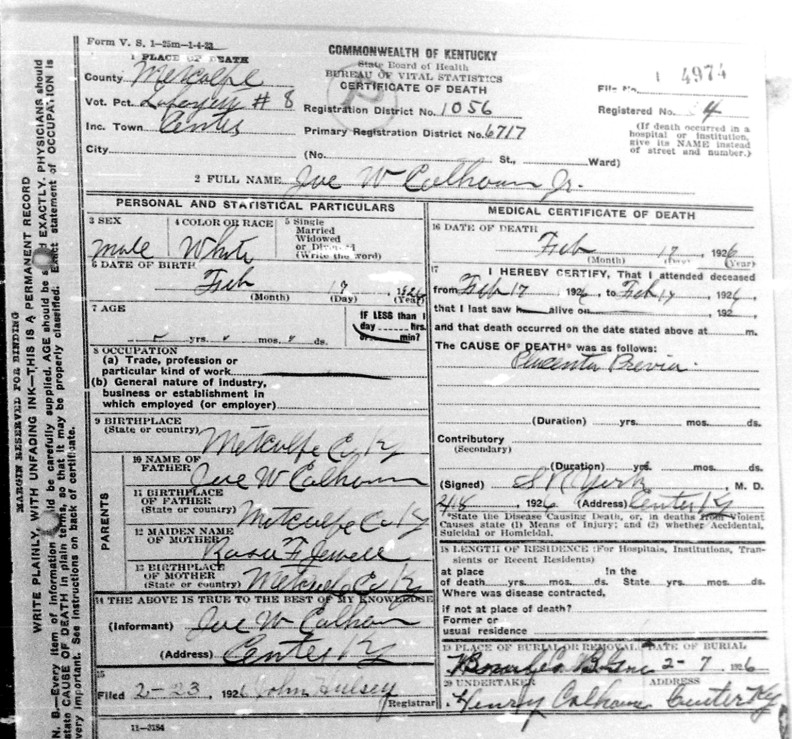 Form V. S. 1-25m-1-4-23
COMMONWEALTH OF KENTUCKY
State Board of Health
BUREAU OF VITAL STATISTICS
CERTIFICATE OF DEATH
1 PLACE OF DEATH
County Metcalfe
Vot. Pct. # 8
Inc. Town Center
City
Registration District No. 1056
Primary Registration District No. 6717
(No. St., Ward)
File No. 4974
Registered No. 4
(If death occurred in a
hospital or institution,
give its NAME instead
of street and number.)
2 FULL NAME Joe W Calhoun Jr.
PERSONAL AND STATISTICAL PARTICULARS
3 SEX
male
4 COLOR OR RACE
White
5 Single
Married
Widowed
or
(Write the word)
6 DATE OF BIRTH
Feb 17, 1926
(Month) (Day) (Year)
7 AGE
yrs. mos. ds.
IF LESS than 1
day hrs.
or min?
8 OCCUPATION
(a) Trade, profession or
particular kind of work
(b) General nature of industry,
business or establishment in
which employed (or employer)
9 BIRTHPLACE
(State or country) Metcalfe Co Ky
PARENTS
10 NAME OF
FATHER Joe W Calhoun
11 BIRTHPLACE
OF FATHER
(State or country) Metcalfe Co Ky
12 MAIDEN NAME
OF MOTHER F. Jewell
13 BIRTHPLACE
OF MOTHER
(State or country) Metcalfe Co Ky
14 THE ABOVE IS TRUE TO THE BEST OF MY KNOWLEDGE
(Informant) Joe W Calhoun
(Address) Center Ky
15
Filed 2-23, 1926 John Hulsey
Registrar
11-3154
MEDICAL CERTIFICATE OF DEATH
16 DATE OF DEATH
Feb 17, 1926
(Month) (Day) (Year)
17
I HEREBY CERTIFY, That I attended deceased
from Feb 17 1926, to Feb 17, 1926,
that I last saw h alive on , 192
and that death occurred on the date stated above at m.
The CAUSE OF DEATH* was as follows:
Placenta Previa
(Duration) yrs. mos. ds.
Contributory
(Secondary)
(Duration) yrs. mos. ds.
(Signed) York, M. D.
2/18, 1926 (Address) Center Ky
*State the Disease Causing Death, or, in deaths from Violent
Causes state (1) Means of Injury; and (2) whether Accidental,
Suicidal or Homicidal.
18 LENGTH OF RESIDENCE (For Hospitals, Institutions, Tran-
sients or Recent Residents)
at place In the
of death yrs. mos. ds. State yrs. mos. ds.
Where was disease contracted,
if not at place of death?
Former or
usual residence
19 PLACE OF BURIAL OR REMOVAL DATE OF BURIAL
2-7, 1926
20 UNDERTAKER ADDRESS
Henry Calhoun Center Ky
MARGIN RESERVED FOR BINDING
WRITE PLAINLY, WITH UNFADING INK—THIS IS A PERMANENT RECORD
N. B.—Every item of information should be carefully supplied. AGE should be EXACTLY. PHYSICIANS should
state CAUSE OF DEATH in plain terms, so that it may be properly classified. Exact statement of OCCUPATION is
very important. See instructions on back of certificate.